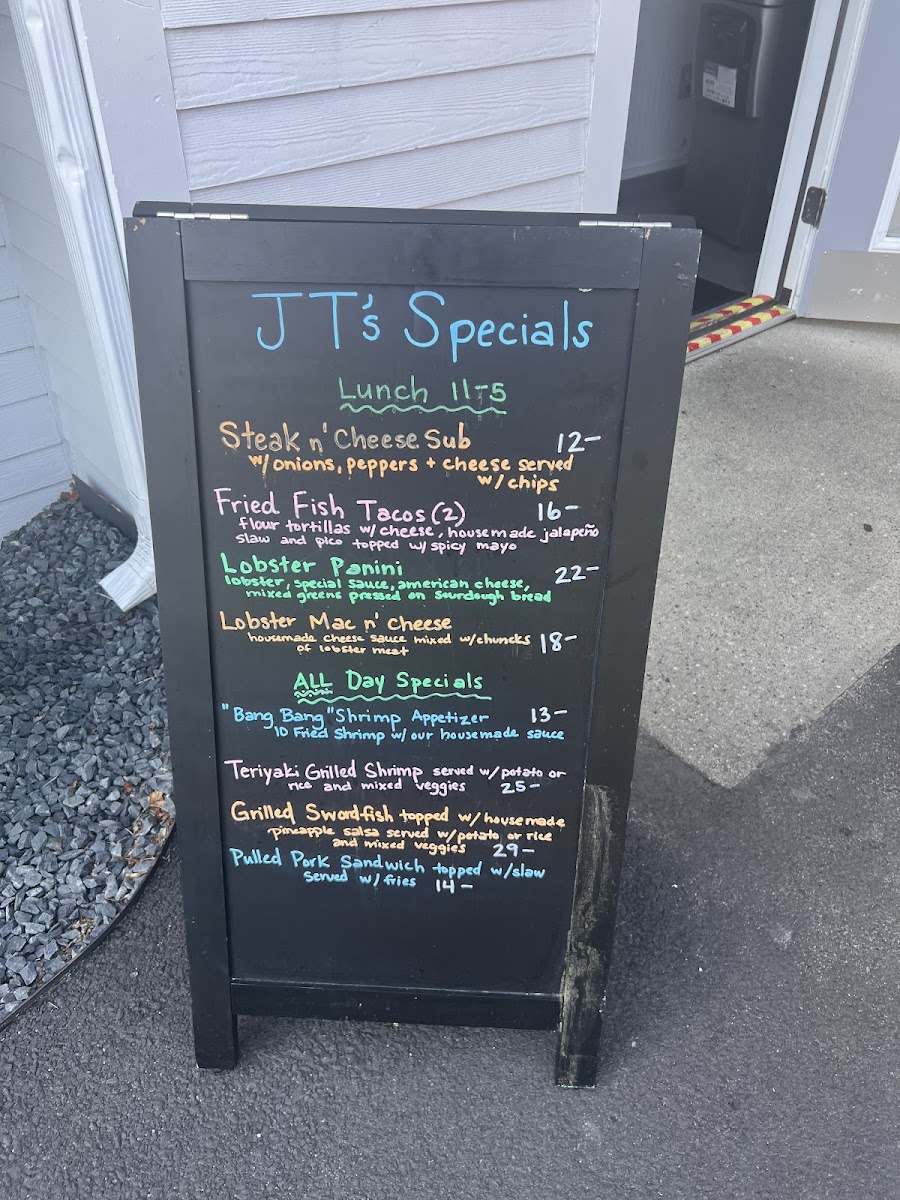 JT's Specials
Lunch 11-5
Steak n' Cheese Sub 12-
w/onions, peppers + cheese served
w/chips
Fried Fish Tacos (2) 16-
flour tortillas w/cheese, housemade jalapeño
slaw and pico topped w/ spicy mayo
Lobster Panini 22-
lobster, special sauce, american cheese,
mixed greens pressed on sourdough bread
Lobster Mac n' cheese
housemade cheese sauce mixed w/chuncks 18-
of lobster meat
ALL Day Specials
"Bang Bang" Shrimp Appetizer 13-
10 Fried Shrimp w/ our housemade sauce
Teriyaki Grilled Shrimp served w/potato or
rice and mixed veggies 25-
Grilled Swordfish topped w/housemade
pineapple salsa served w/potato or rice
and mixed veggies 29-
Pulled Pork Sandwich topped w/slaw
served w/fries 14-